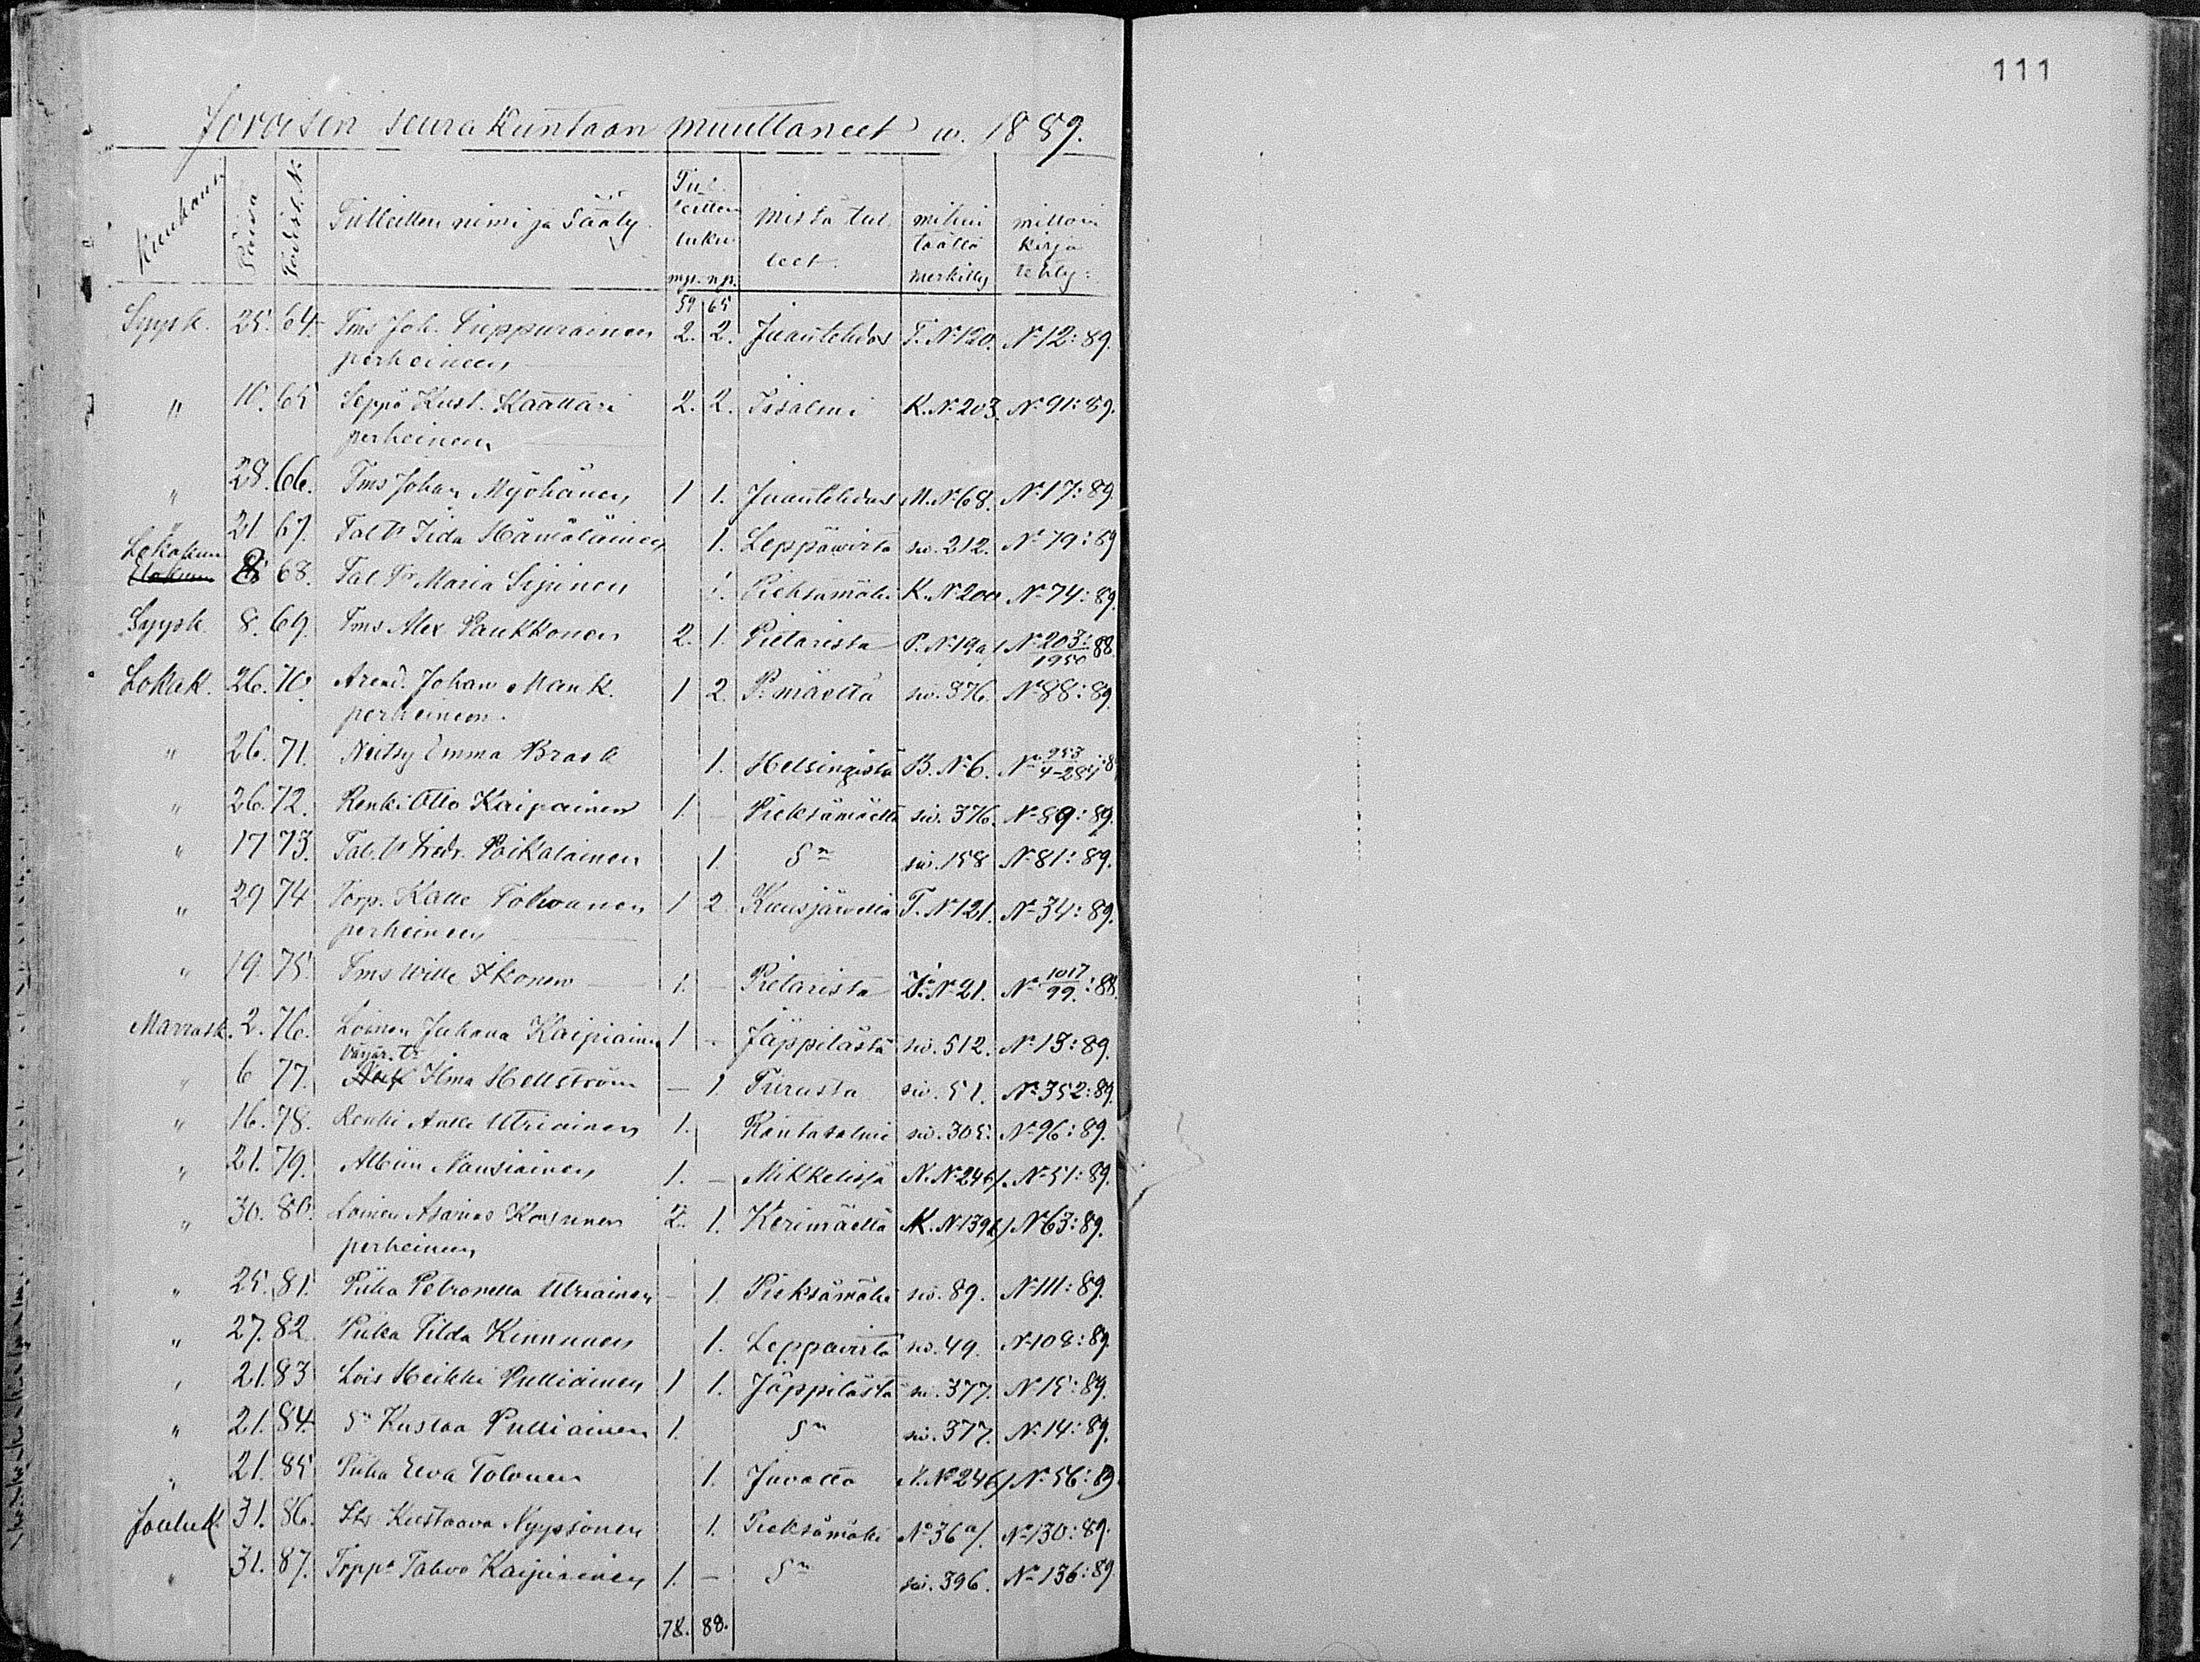 111
Joroisin seurakuntaan muuttaneet w. 1889.
Kuukausi Päivä Todist. No Tulleitten nimi ja Sääty. Tulleitten luku mp. np. mistä tulleet. mihin täällä merkitty milloin kirja tehty:
59 65
Syysk. 25. 64. Tms Joh. Tuppurainen 2. 2. Juantehdas T. No 120. No 12: 89.
perheineen
" 10. 65 Seppä Kust. Kaattari 2. 2. Iisalmi K. No 203. No 91: 89.
perheineen
" 28. 66. Tms Johan Myöhänen 1 1. Juantehdas M. No 68. No 17: 89
21 67. Tal. tr Iida Hämäläinen 1. Leppäwirta siv. 212. No 79: 89
Lokakuu 8 68. Tal. Tr Maria 1. Pieksämäki K. No 200 No 74: 89.
Syysk. 8. 69. Tms Alex Paukkonen 2. 1. Pietarista P. No 19a/ No 203/1950: 88.
Lokak. 26. 70. Arend. Johan Mank. 1 2. P:mäeltä siv. 376. No 88: 89.
perheineen.
" 26. 71. Neitsy Emma Brask 1. Helsingistä B. No 6. No 953/4-284: 8
" 26. 72. Renki Otto Kaipainen 1. – Pieksämäeltä siv. 376. No 89: 89.
" 17 73. Tal. tr Fredr. Poikalainen 1. Sn siv. 158 No 81: 89.
" 29 74 Torp. Kalle Tolwanen 1 2 Kuusjärweltä T. No 121. No 34: 89.
perheineen
" 19. 75. Tms Wille Ikonen 1. – Pietarista I. No 21. No 1017/99.: 88.
Marrask. 2. 76. Loinen Juhana Kaipiainen 1 – Jäppilästä siv. 512. No 13: 89.
Värjär. tr
" 6 77. Ilma Hellström – 1. Turusta siv. 51. No 352: 89.
" 16. 78. Renki Antti Utriainen 1. Rantasalmi siv. 305. No 96: 89.
" 21. 79. Albin Nousiainen 1. – Mikkelistä N. No 24b/. No 51: 89.
" 30. 80. Loinen Asarias Kosunen 2. 1. Kerimäeltä K. No 139b/ No 63: 89.
perheineen
" 25. 81. Piika Petronella Utriainen – 1. Pieksämäki siv. 89. No 111: 89.
" 27. 82. Piika Tilda Kinnunen 1. Leppävirta siv. 49. No 108: 89.
" 21. 83 Lois Heikki Pulliainen 1 1. Jäppilästä siv. 377. No 15: 89.
" 21. 84. Sn Kustaa Pulliainen 1. Sn siv. 377. No 14: 89.
" 21. 85 Piika Eeva Tolonen 1. Juvalta N. No 24b/ No 56: 89
Jouluk. 31. 86. Kustaava Nyyssönen 1. Pieksämäki No 36a/. No 130: 89.
" 31. 87. Torppa Tahvo Kaipiainen 1. – Sn siv. 396. No 136: 89
78. 88.